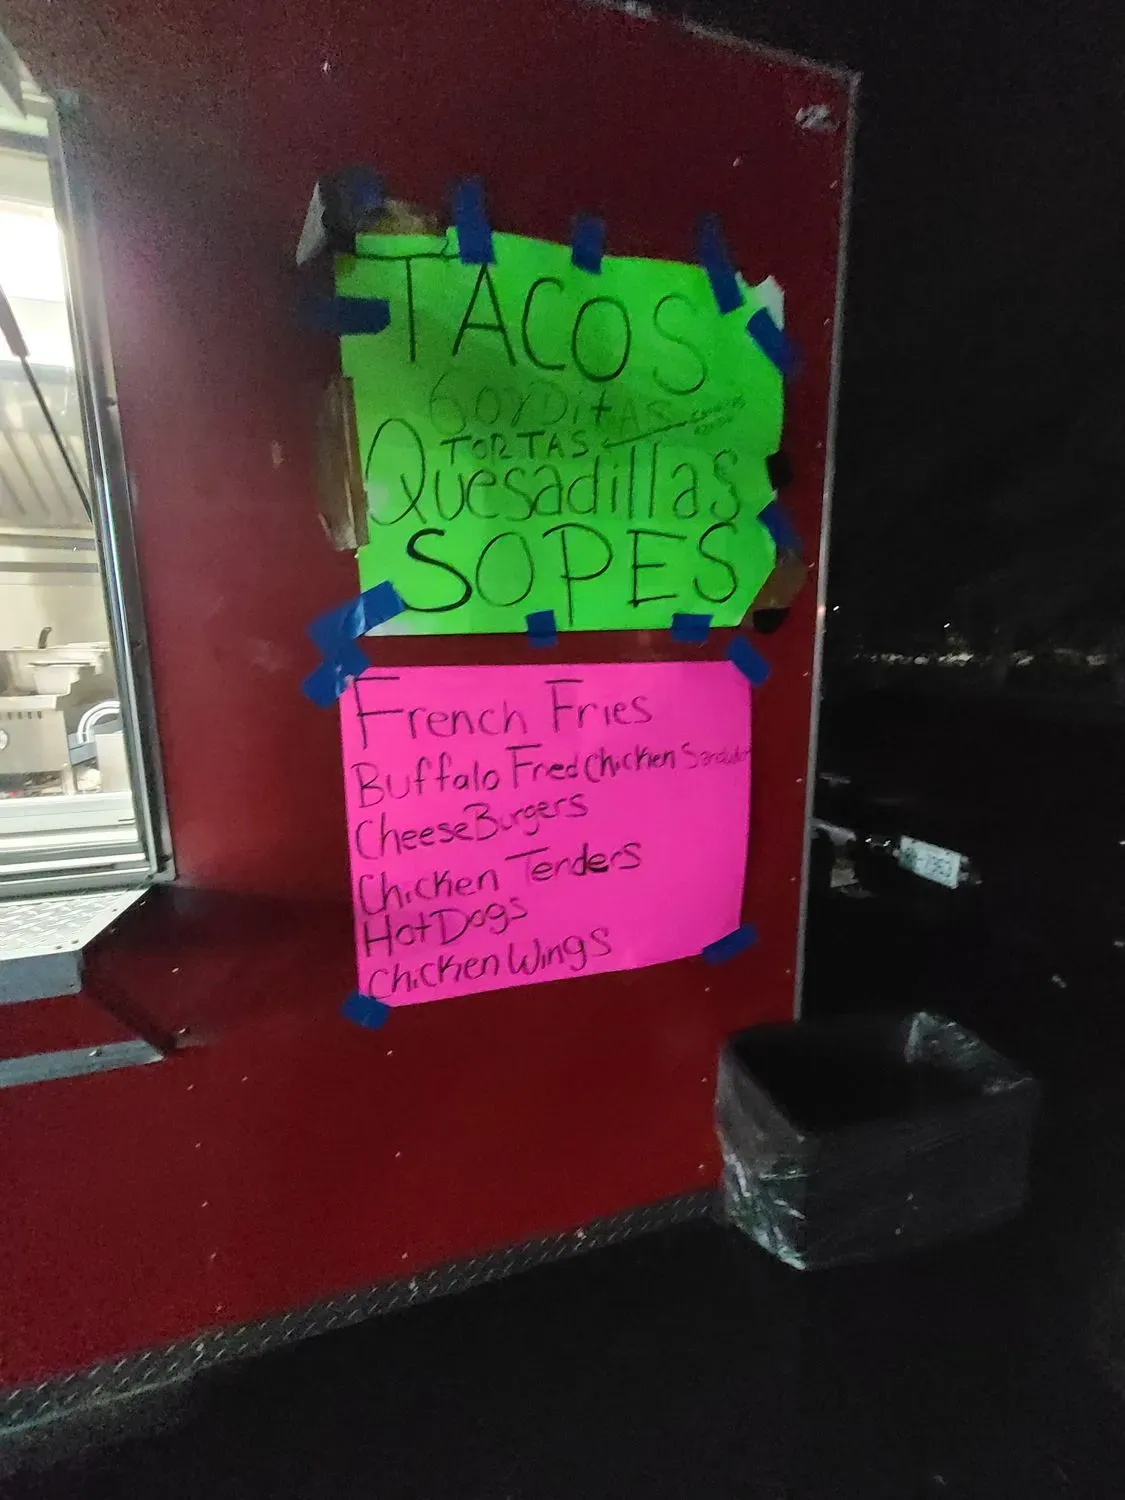 TACOS
GORDitAS
TORTAS
Quesadillas
SOPES
French Fries
Buffalo Fried Chicken
CheeseBurgers
Chicken Tenders
Hot Dogs
Chicken Wings